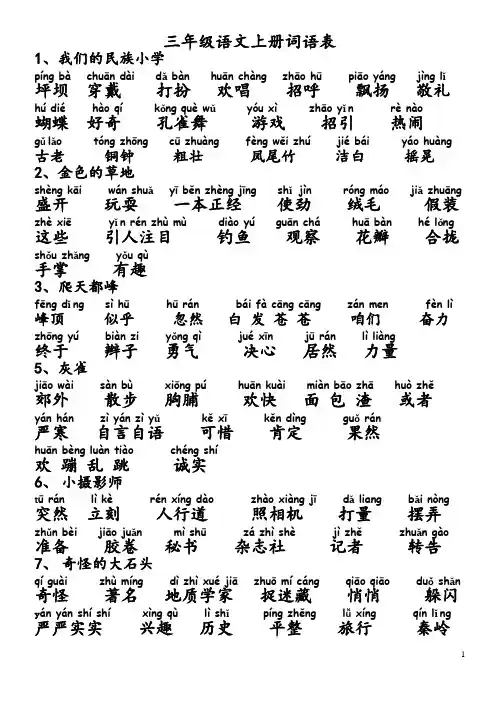 三年级语文上册词语表
1、我们的民族小学
píng bà chuān dài dǎ bàn huān chàng zhāo hū piāo yáng jìng lǐ
坪坝 穿戴 打扮 欢唱 招呼 飘扬 敬礼
hú dié hào qí kǒng què wǔ yóu xì zhāo yǐn rè nào
蝴蝶 好奇 孔雀舞 游戏 招引 热闹
gǔ lǎo tóng zhōng cū zhuàng fèng wěi zhú jié bái yáo huàng
古老 铜钟 粗壮 凤尾竹 洁白 摇晃
2、金色的草地
shèng kāi wán shuǎ yī běn zhèng jīng shǐ jìn róng máo jiǎ zhuāng
盛开 玩耍 一本正经 使劲 绒毛 假装
zhè xiē yǐn rén zhù mù diào yú guān chá huā bàn hé lǒng
这些 引人注目 钓鱼 观察 花瓣 合拢
shǒu zhǎng yǒu qù
手掌 有趣
3、爬天都峰
fēng dǐng sì hū hū rán bái fà cāng cāng zán men fèn lì
峰顶 似乎 忽然 白 发 苍 苍 咱们 奋力
zhōng yú biàn zi yǒng qì jué xīn jū rán lì liàng
终于 辫子 勇气 决心 居然 力量
5、灰雀
jiāo wài sàn bù xiōng pú huān kuài miàn bāo zhā huò zhě
郊外 散步 胸脯 欢快 面 包 渣 或者
yán hán zì yán zì yǔ kě xī kěn dìng guǒ rán
严寒 自言自语 可惜 肯定 果然
huān bèng luàn tiào chéng shí
欢 蹦 乱 跳 诚实
6、 小摄影师
tū rán lì kè rén xíng dào zhào xiàng jī dǎ liang bǎi nòng
突然 立刻 人行道 照相机 打量 摆弄
zhǔn bèi jiāo juǎn mì shū zá zhì shè jì zhě zhuǎn gào
准备 胶卷 秘书 杂志社 记者 转告
7、 奇怪的大石头
qí guài zhù míng dì zhì xué jiā zhuō mí cáng qiāo qiāo duǒ shǎn
奇怪 著名 地质学家 捉迷藏 悄悄 躲闪
yán yán shí shí xìng qù lì shǐ píng zhěng lǚ xíng qín lǐng
严严实实 兴趣 历史 平整 旅行 秦岭
1